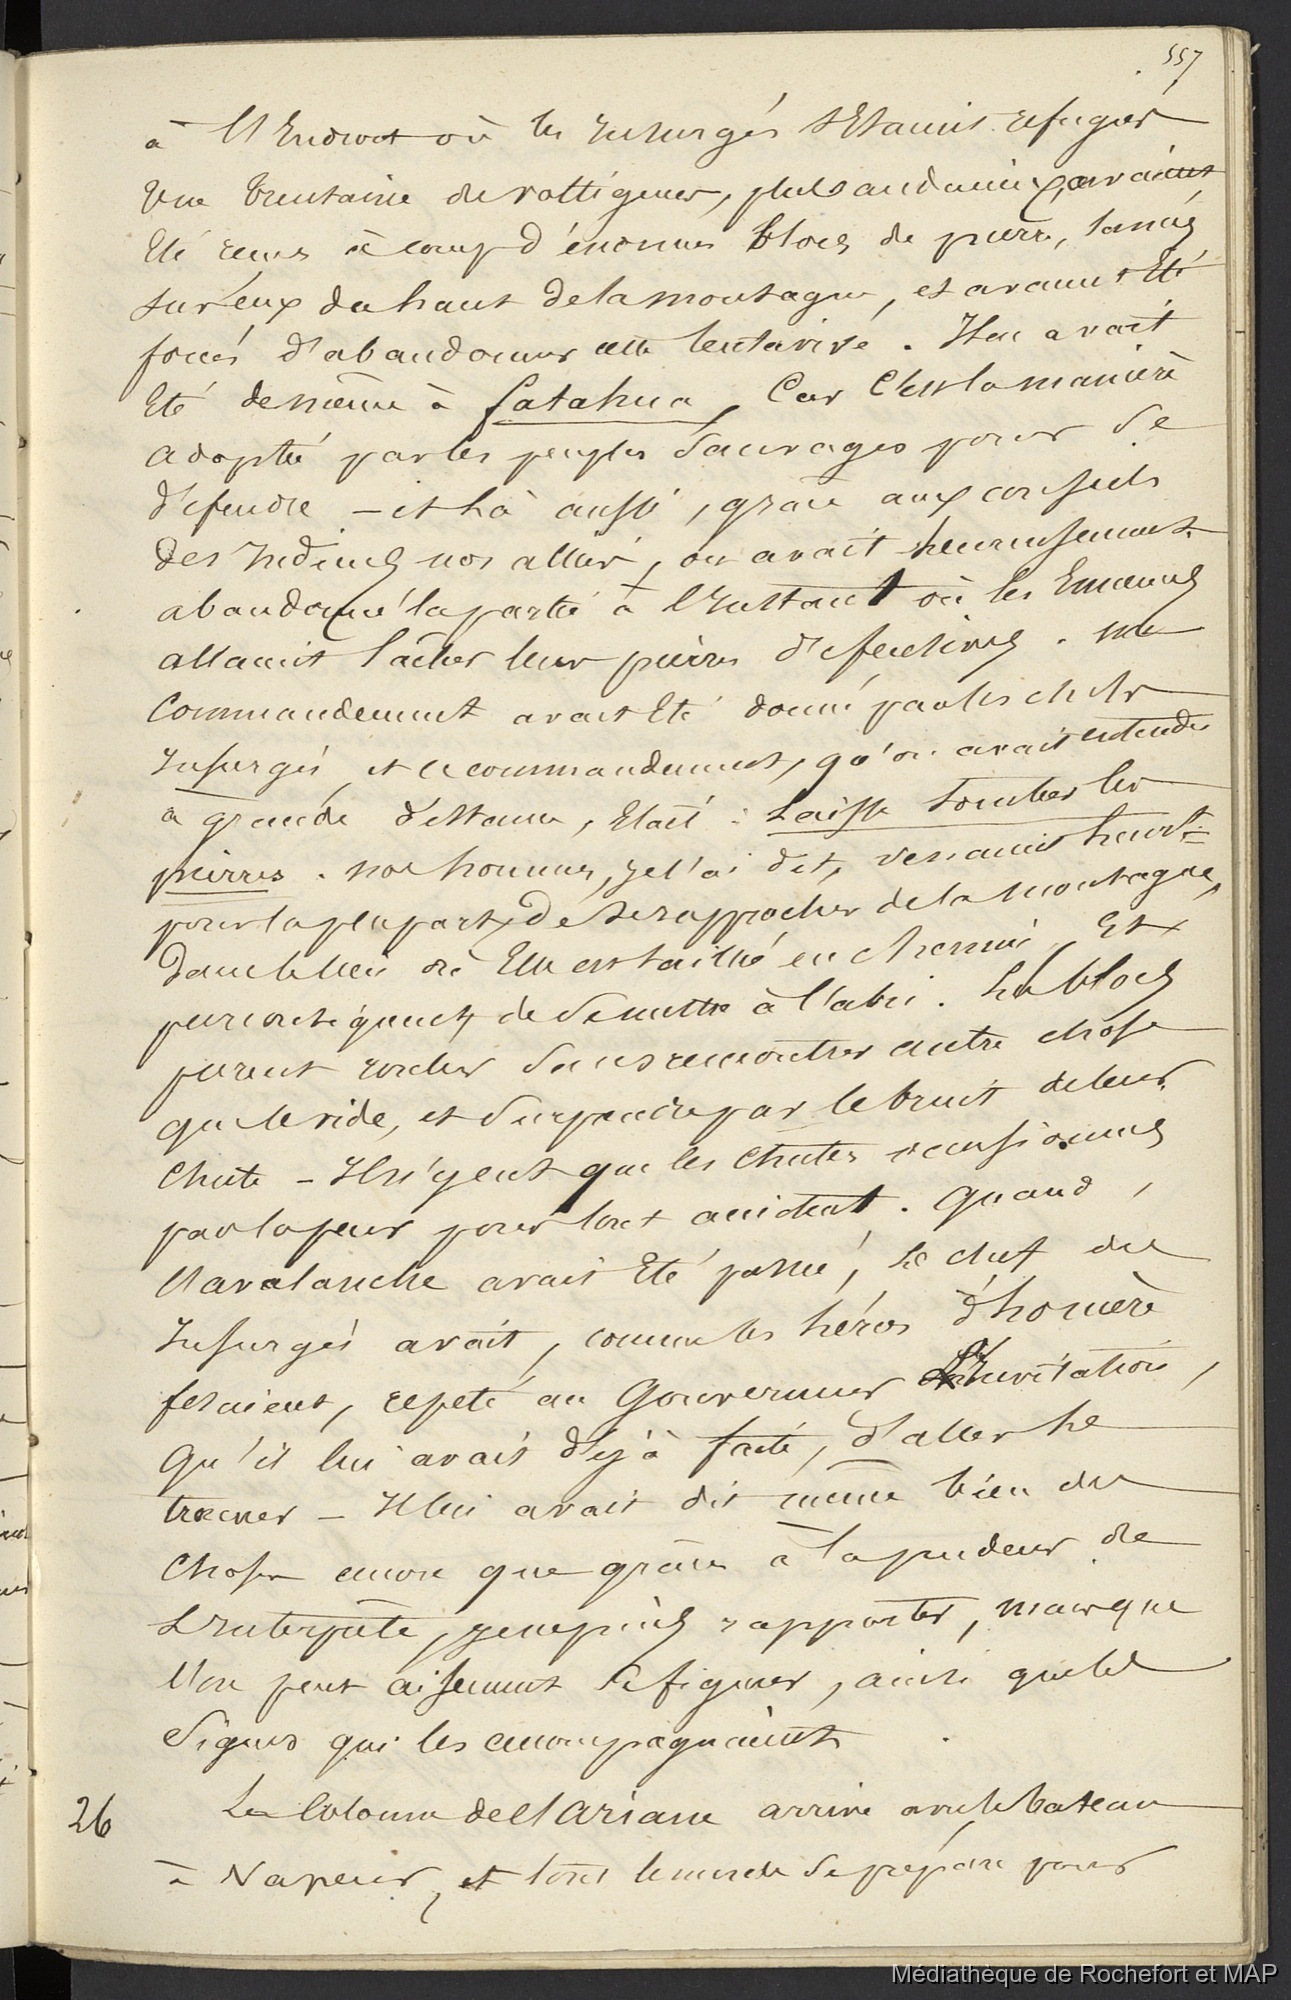 557
à l'Endroit où les insurgés s'Etaient refugiés
Une trentaine de voltigeurs, plus audacieux, avaient
Eté reçus à coup d'énormes blocs de pierre, lancés
sur eux du haut de la montagne, et avaient Eté
forcés d'abandonner cette tentative. Il en avait
Eté de même à fatahua, Car C'est la manière
adoptée par les peuples Sauvages pour Se
défendre - et là aussi, grâce aux conseils
des Indiens nos alliés, on avait heureusement
abandonné la partie à l'Instant où les Ennemis
allaient lâcher leur pierres défensives. un
Commandement avait Eté donné par les chefs
Insurgés, et ce commandement, qu'on avait entendu
à grande distance, Etait : Laisse tomber les
pierres. nos hommes, je l'ai dit, venaient heureust
pour la plupart, de se rapprocher de la montagne,
dans le lieu où Elle est taillée en chemin, Et
par conséquent de Se mettre à l'abri. Les blocs
purent rouler Sans rencontrer autre chose
que le vide, et Surprendre par le bruit de leur
Chute - Il n'y eut que les chutes occasionnées
par la peur pour tout accident. Quand,
l'avalanche avait Eté passée, le chef des
Insurgés avait, comme les héros d'homère
fesaient, repeté au Gouverneur l'Invitation,
Qu'il lui avait déjà faite, d'aller le
trouver - Il lui avait dit même bien des
Choses encore que grâce à la pudeur de
L'Interprète, je ne puis rapporter, mais que
l'on peut aisement Se figurer, ainsi que les
Signes qui les accompagnaient
26 La Colonne de l'Ariane arrive avec le bateau
à Vapeur, et tout le monde Se prépare pour
Médiathèque de Rochefort et MAP